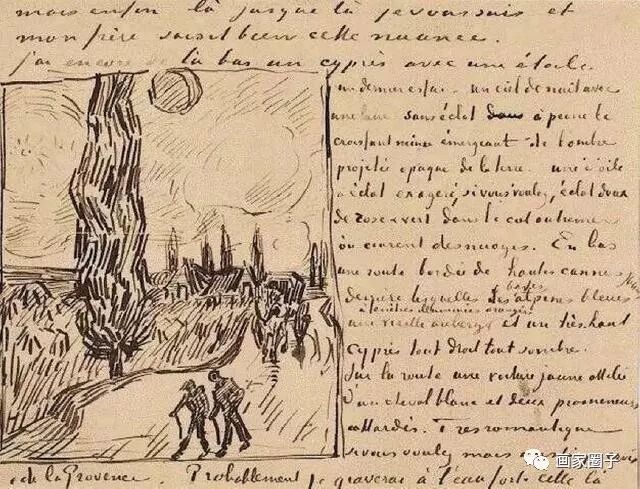 mais enfin là jusque là je vous suis et
mon frère saisit bien cette nuance.
J'ai encore de là bas un cyprès avec une étoile
un dernier essai – un ciel de nuit avec
une lune sans éclat dans à peine le
croissant mince émergeant de l'ombre
projetée opaque de la terre – une étoile
à éclat exagéré, si vous voulez, éclat doux
de rose & vert dans le ciel outremer
où courent des nuages. En bas
une route bordée de hautes cannes jaunes
derrière lesquelles les basses alpines bleues
à fenêtres illuminées orangées
une vieille auberge et un très haut
cyprès tout droit tout sombre.
Sur la route une voiture jaune attelée
d'un cheval blanc et deux promeneurs
attardés. Très romantique
si vous voulez mais
de la Provence. Probablement je graverai à l'eau forte celle là
画家圈子